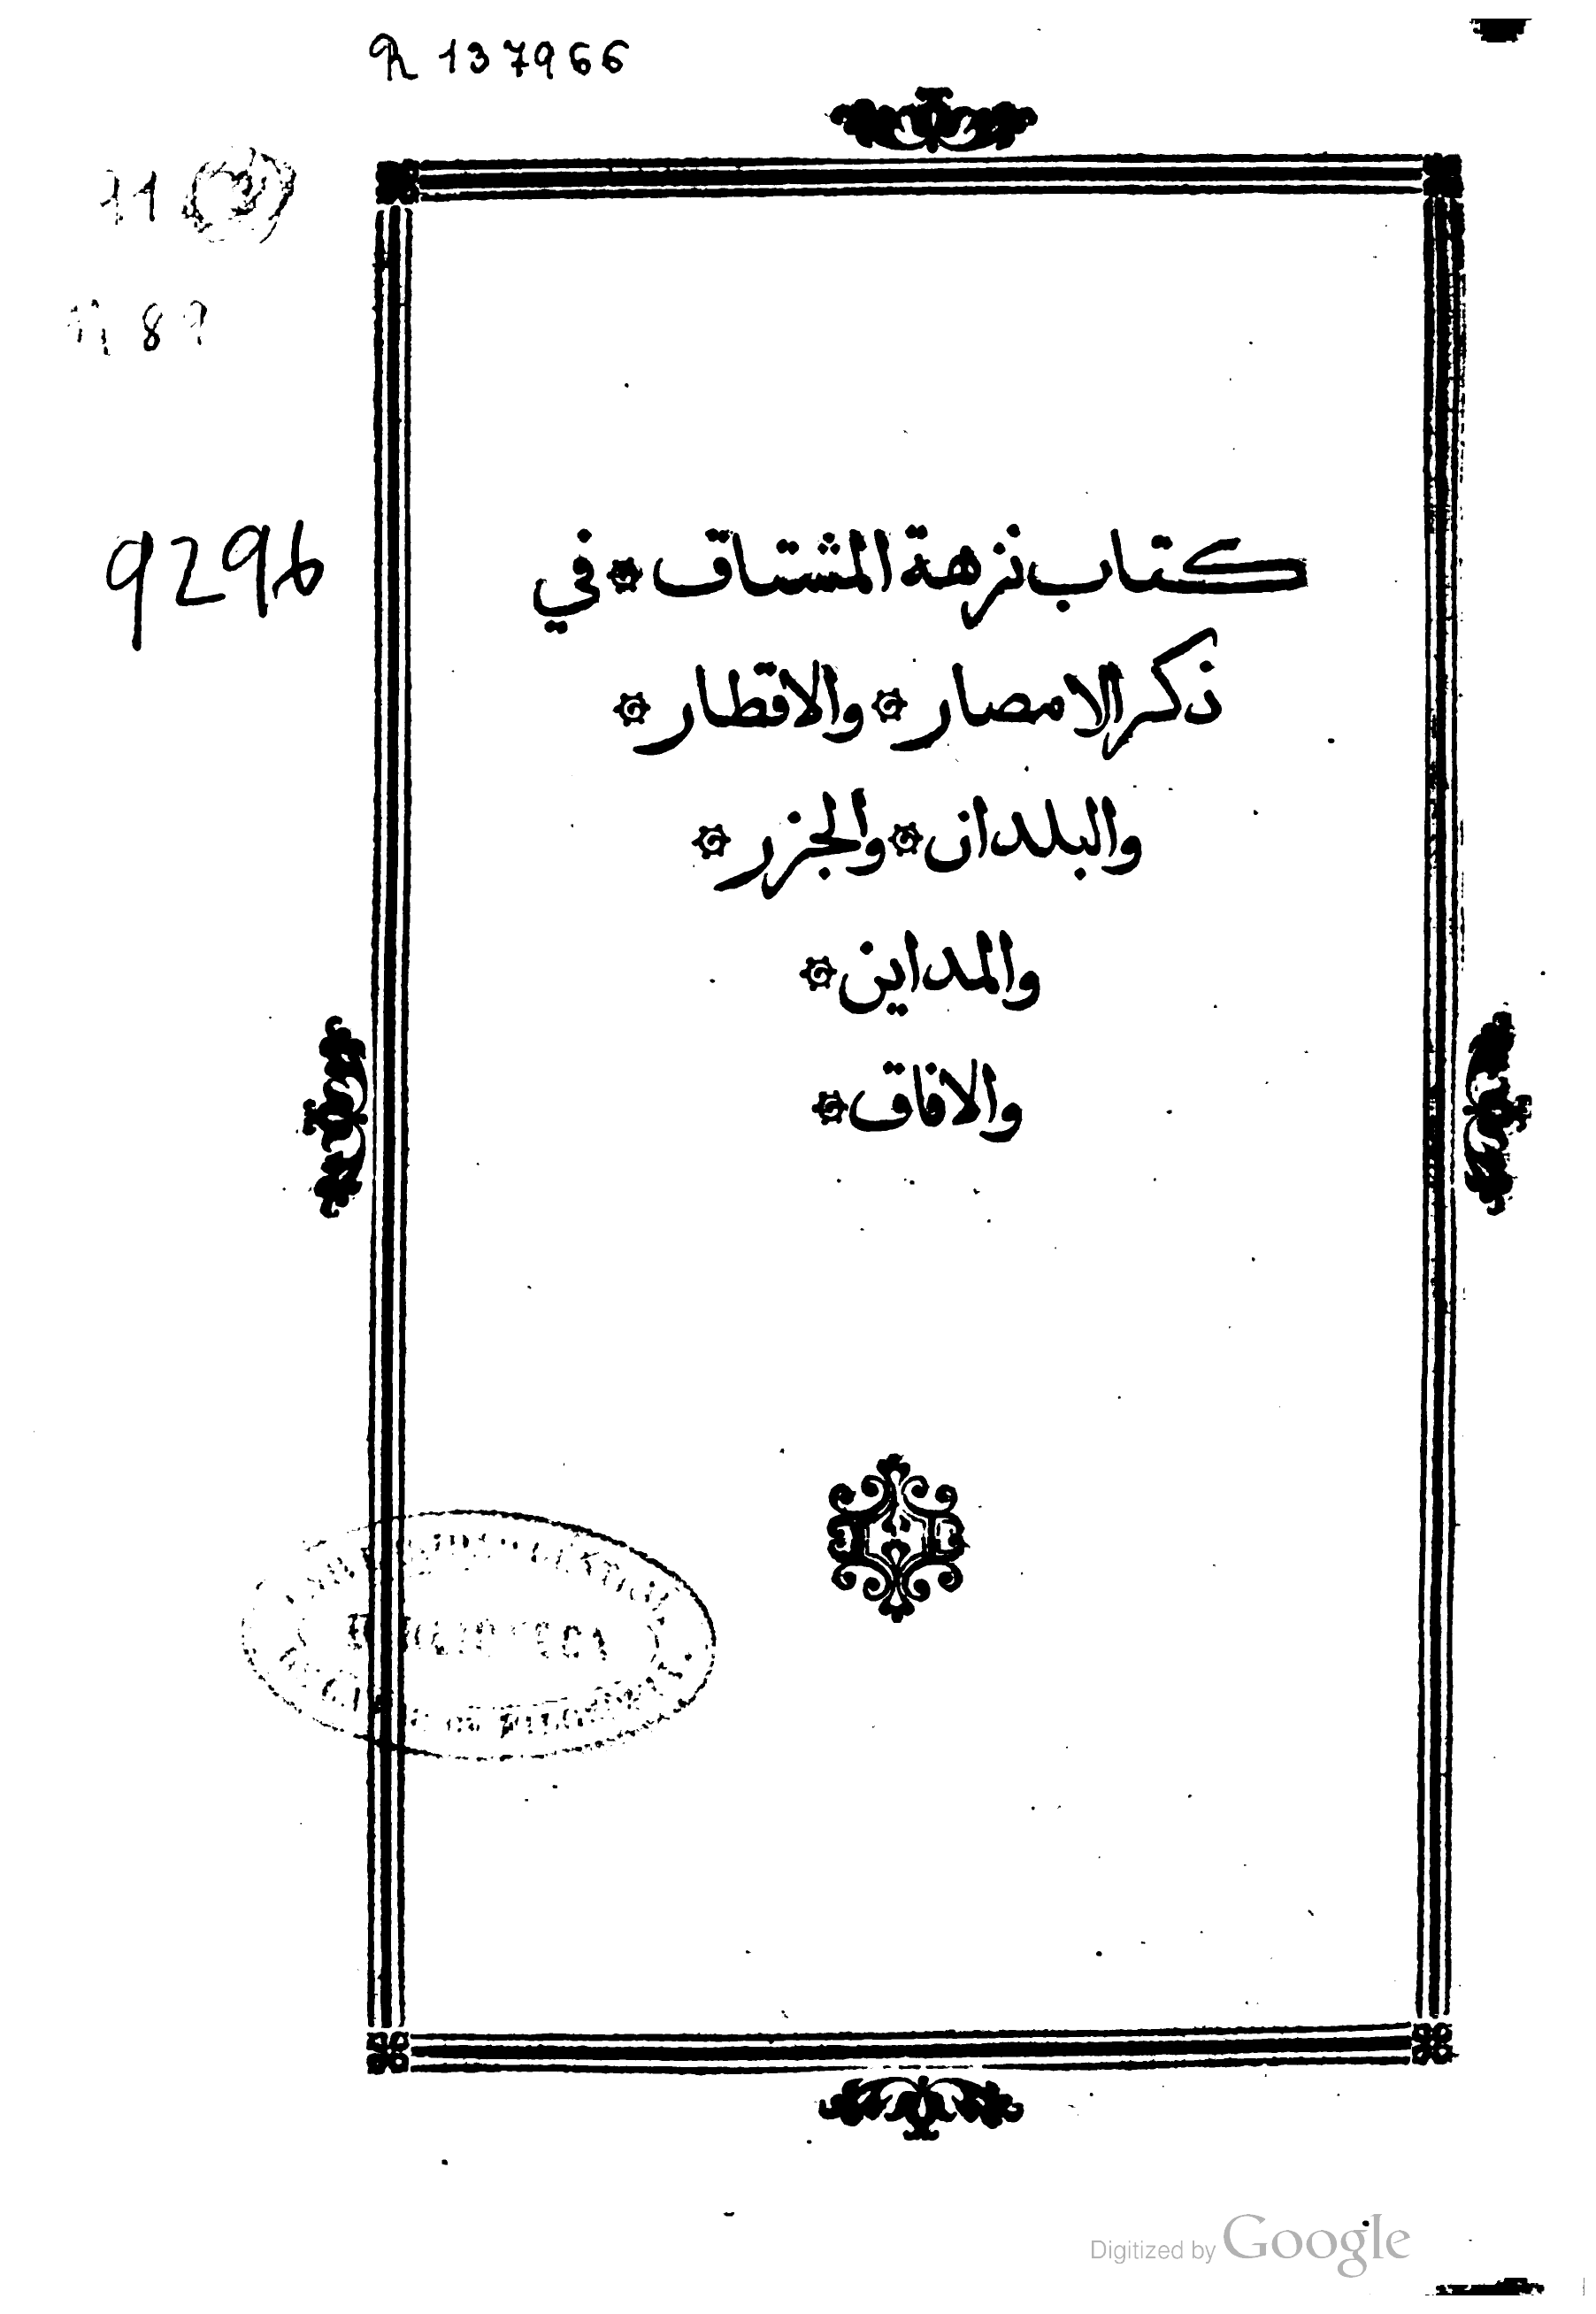 R 137966
9296
كتاب نزهة المشتاق ۞ في
ذكر الامصار ۞ والاقطار ۞
والبلدان ۞ والجزر ۞
والمداين ۞
والافاق ۞
Digitized by Google